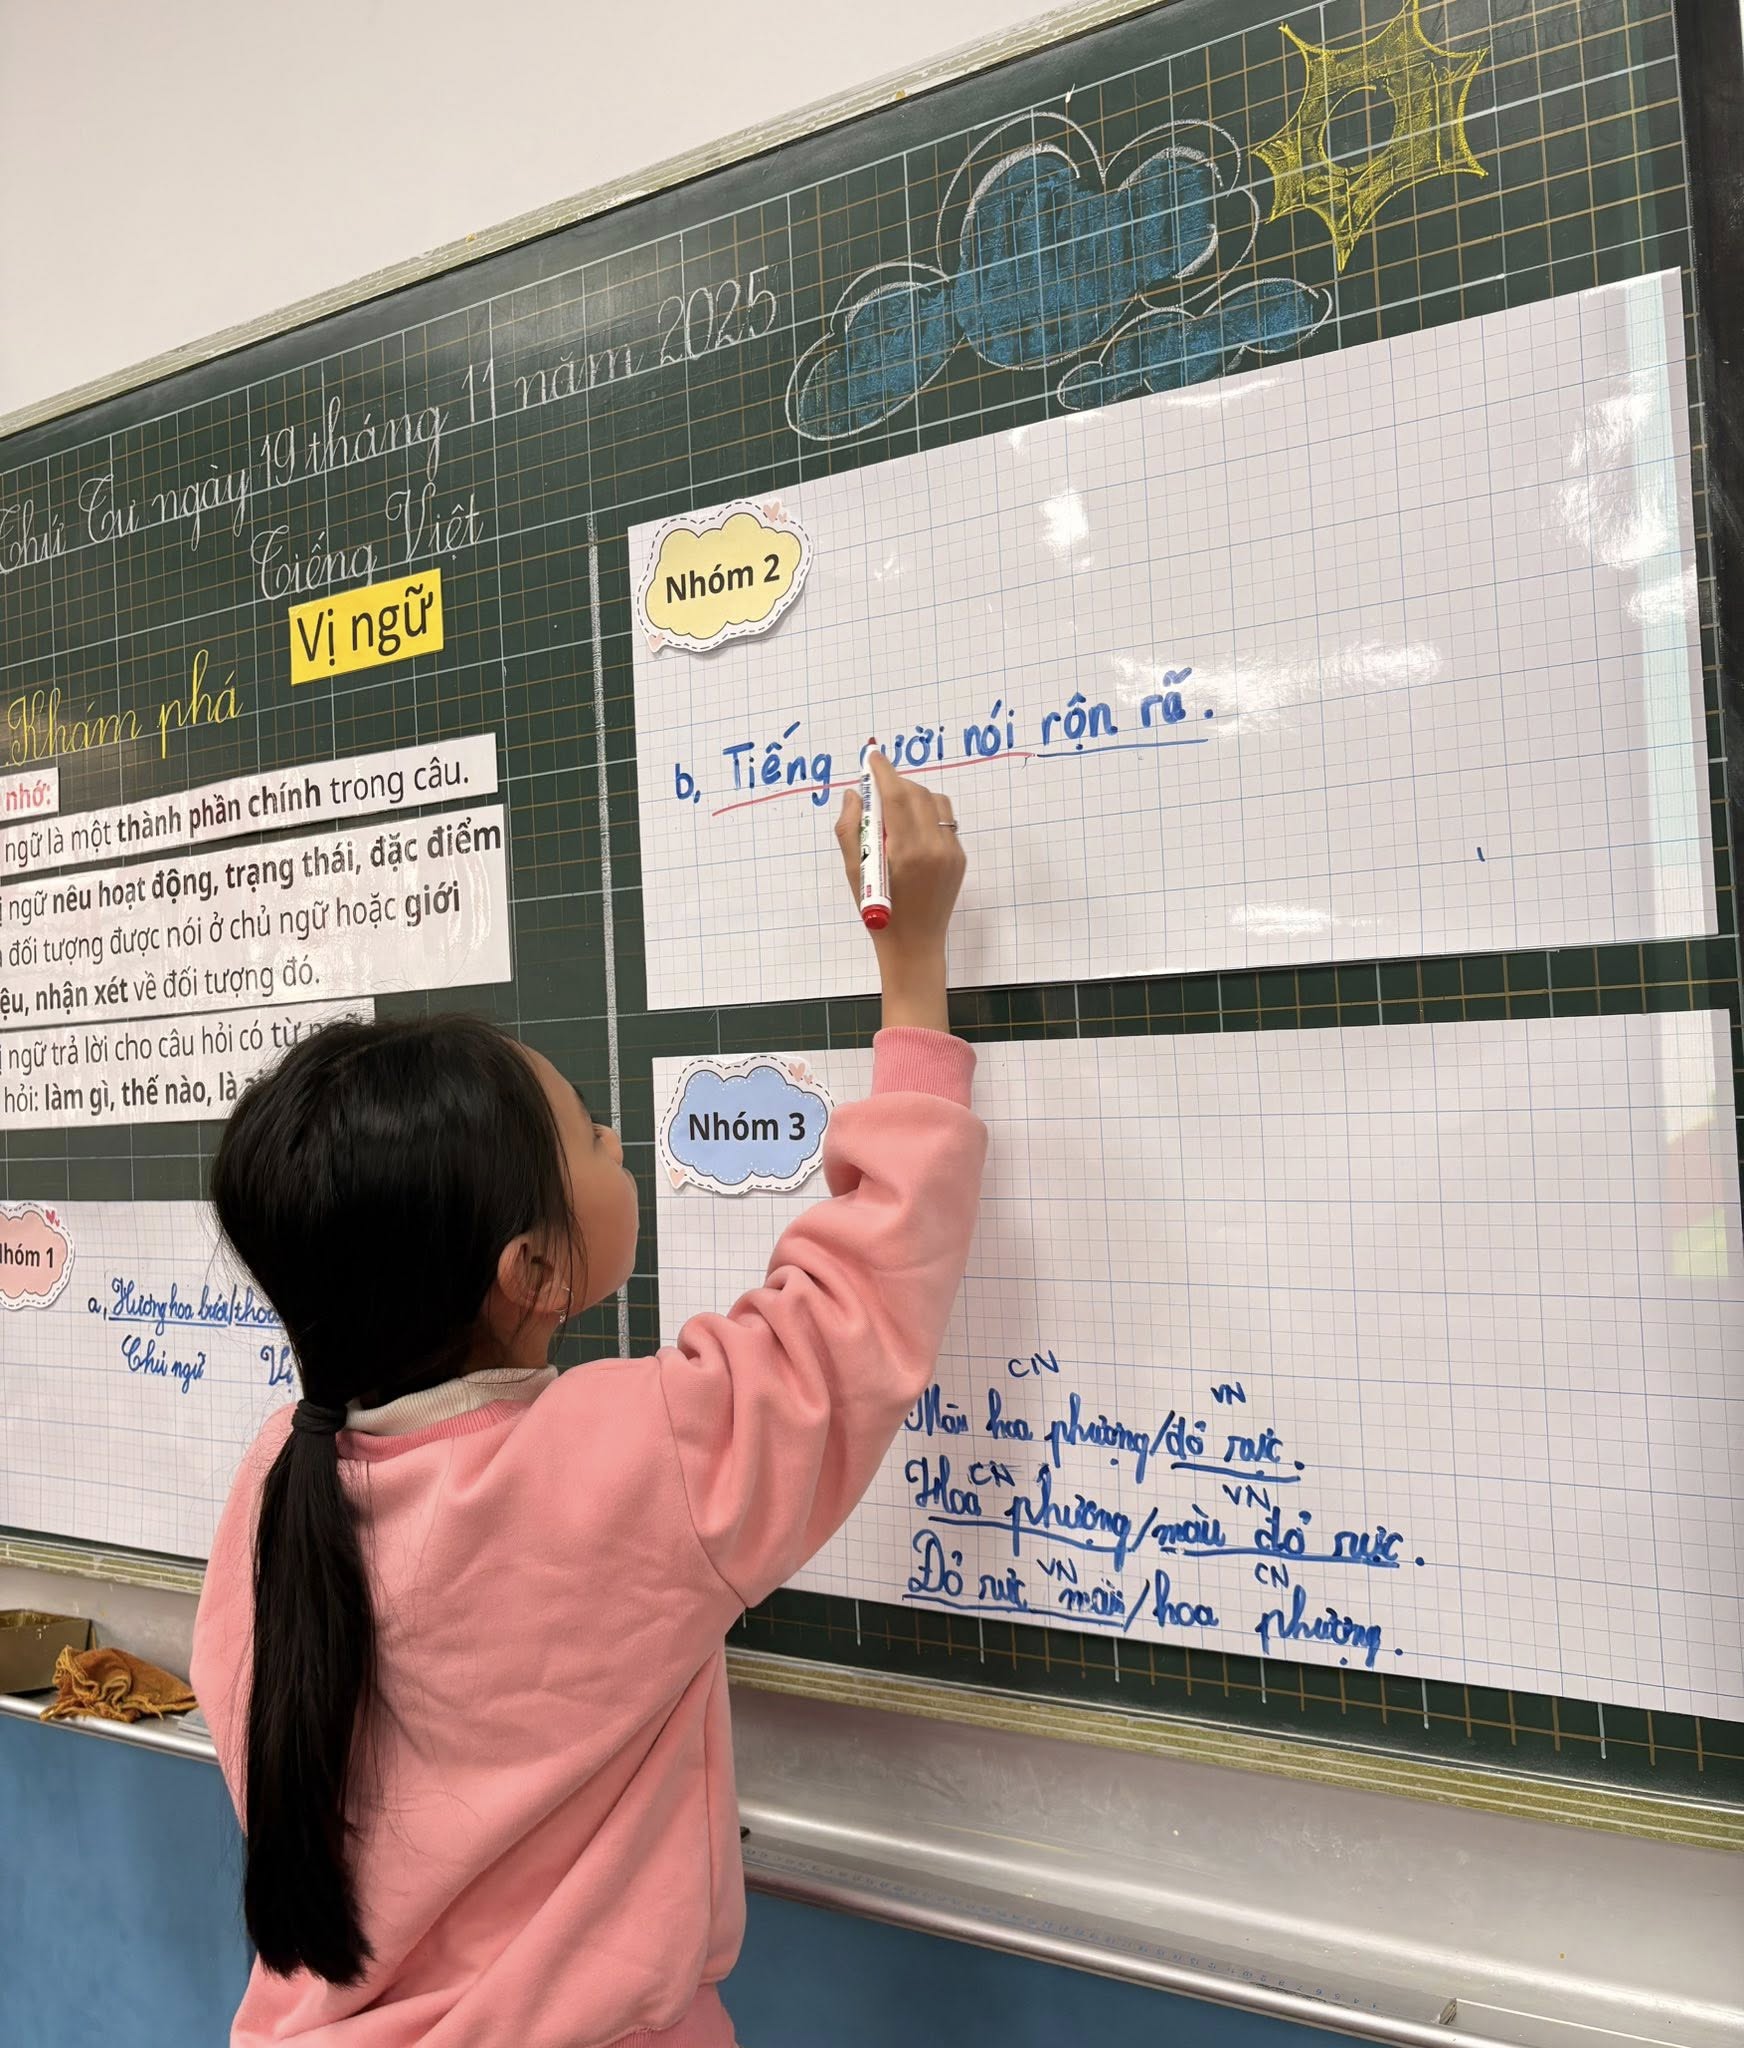 Thứ Tư ngày 19 tháng 11 năm 2025
Tiếng Việt
Vị ngữ
Khám phá
nhớ:
ngữ là một thành phần chính trong câu.
ị ngữ nêu hoạt động, trạng thái, đặc điểm
đối tượng được nói ở chủ ngữ hoặc giới
ệu, nhận xét về đối tượng đó.
ị ngữ trả lời cho câu hỏi có từ ngữ
hỏi: làm gì, thế nào, là
Nhóm 1
a, Hương hoa bưởi/thoa
Chủ ngữ Vị
Nhóm 2
b, Tiếng cười nói rộn rã.
Nhóm 3
CN VN
Màu hoa phượng/đỏ rực.
CN VN
Hoa phượng/màu đỏ rực.
VN CN
Đỏ rực màu/hoa phượng.